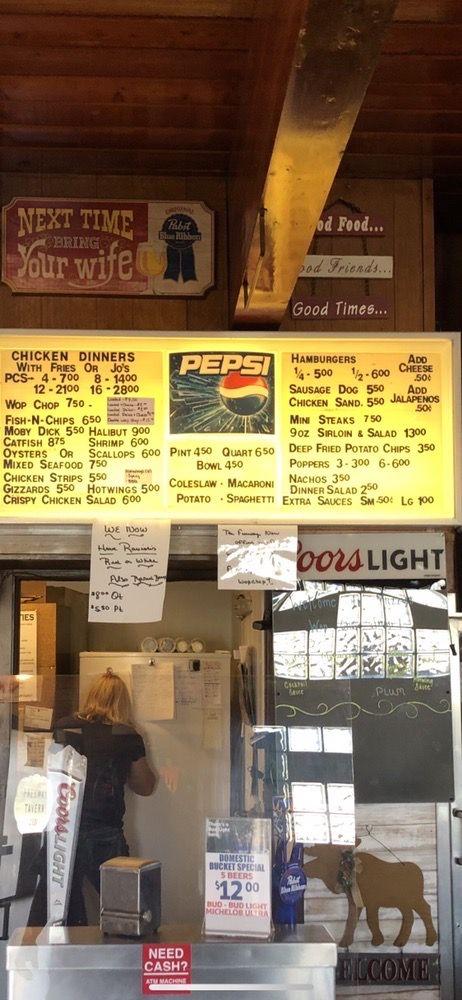 NEXT TIME
BRING
Your wife
ORIGINAL
Pabst
Blue Ribbon
od Food...
ood Friends...
Good Times...
CHICKEN DINNERS
WITH FRIES OR JO'S
PCS- 4 - 700 8 - 1400
12 - 2100 16 - 2800
WOP CHOP 750 -
FISH-N-CHIPS 650
MOBY DICK 550 HALIBUT 900
CATFISH 875 SHRIMP 600
OYSTERS OR SCALLOPS 600
MIXED SEAFOOD 750
CHICKEN STRIPS 550
GIZZARDS 550 HOTWINGS 500
CRISPY CHICKEN SALAD 600
PEPSI
PINT 450 QUART 650
BOWL 450
COLESLAW · MACARONI
POTATO · SPAGHETTI
HAMBURGERS
1/4 - 500 1/2 - 600
ADD
CHEESE
.50¢
SAUSAGE DOG 550
CHICKEN SAND. 550
ADD
JALAPENOS
.50¢
MINI STEAKS 750
9OZ SIRLOIN & SALAD 1300
DEEP FRIED POTATO CHIPS 350
POPPERS 3 - 300 6 - 600
NACHOS 350
DINNER SALAD 250
EXTRA SAUCES SM .50¢ LG 100
WE NOW
Have
Red or White
Also
$8.00 Qt
Pt
The
Now
Coors LIGHT
Welcome
Cocktail
Sauce
PLUM
Sauce
TAVERN
Coors LIGHT
DOMESTIC
BUCKET SPECIAL
5 BEERS
$12.00
BUD - BUD LIGHT
MICHELOB ULTRA
Pabst
Blue Ribbon
NEED
CASH?
ATM MACHINE
ELCOME